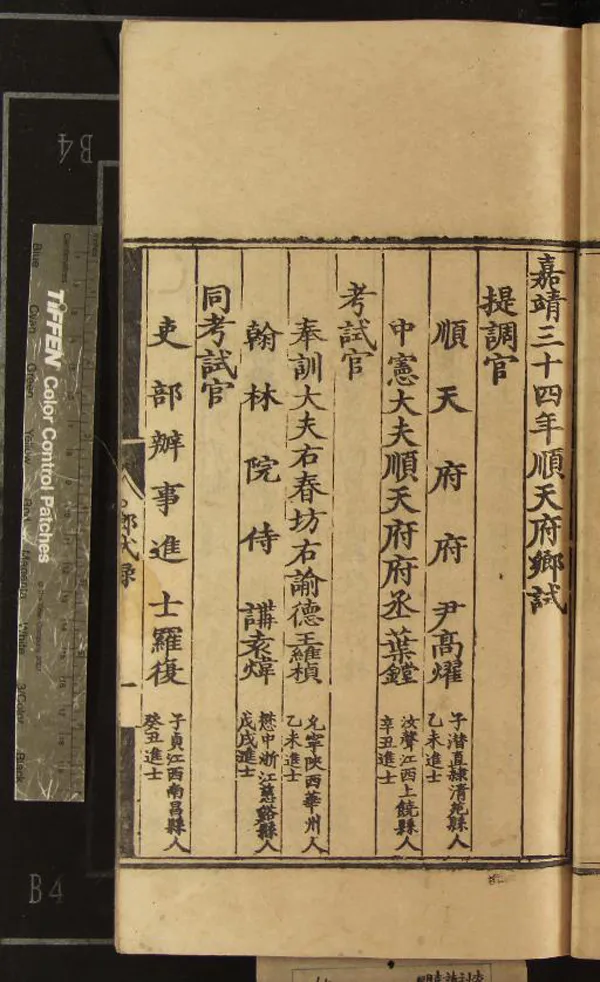 嘉靖三十四年順天府鄉試
提調官
順天府府尹高燿 子潛直隸清苑縣人 乙未進士
中憲大夫順天府府丞葉鏜 汝聲江西上饒縣人 辛丑進士
考試官
奉訓大夫右春坊右諭德王維楨 允寧陝西華州人 乙未進士
翰林院侍講袁煒 懋中浙江慈谿縣人 戊戌進士
同考試官
吏部辦事進士羅復 子貞江西南昌縣人 癸丑進士
鄉試錄 一
B4
TIFFEN Color Control Patches
Blue
Green
Yellow
Red
Magenta
White
3/Color
Black
B4